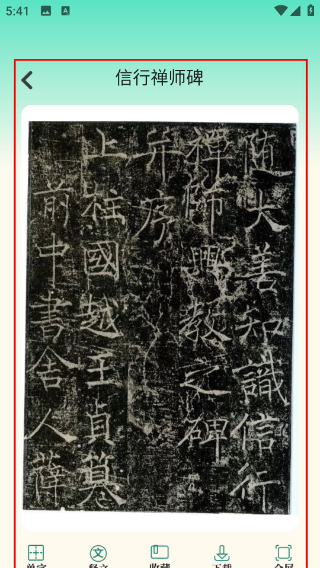 5:41
A
信行禅师碑
隨大善知識信行
禪師興教之碑
并序
上柱國越王貞纂
前中書舍人薛
文
单字
释文
收藏
下载
全屏